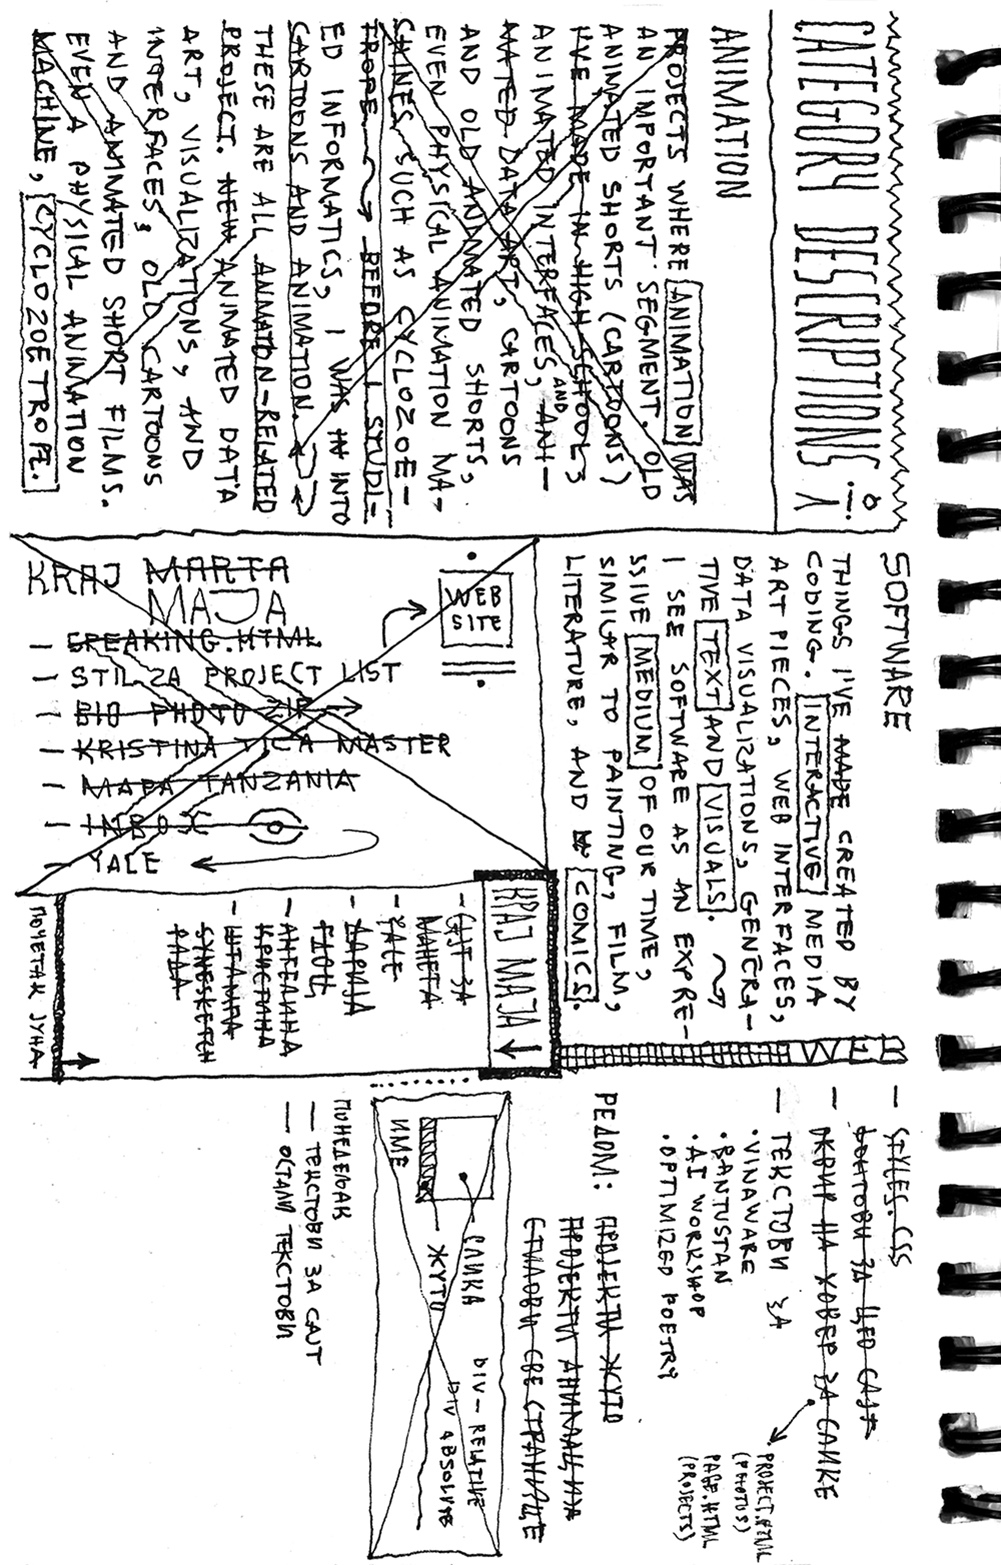 CATEGORY DESCRIPTIONS
ANIMATION
PROJECTS WHERE ANIMATION WAS
AN IMPORTANT SEGMENT. OLD
ANIMATED SHORTS (CARTOONS)
I'VE MADE IN HIGH SCHOOLS
ANIMATED INTERFACES, AND ANI-
MATED DATA ART, CARTOONS
AND OLD ANIMATED SHORTS,
EVEN PHYSICAL ANIMATION MA-
CHINES SUCH AS CYCLOZOE-
TROPE BEFORE I STUDI-
ED INFORMATICS, I WAS IN INTO
CARTOONS AND ANIMATION.
THESE ARE ALL ANIMATION-RELATED
PROJECT. NEW ANIMATED DATA
ART, VISUALIZATIONS, AND
INTERFACES, OLD CARTOONS
AND ANIMATED SHORT FILMS.
EVEN A PHYSICAL ANIMATION
MACHINE, CYCLOZOETROPE.
SOFTWARE
THINGS I'VE MADE CREATED BY
CODING. INTERACTIVE MEDIA
ART PIECES, WEB INTERFACES,
DATA VISUALIZATIONS, GENERA-
TIVE TEXT AND VISUALS.
I SEE SOFTWARE AS AN EXPRE-
SSIVE MEDIUM OF OUR TIME,
SIMILAR TO PAINTING, FILM,
LITERATURE, AND COMICS.
WEB
SITE
KRAJ MARTA
MAJA
- BREAKING.HTML
- STIL ZA PROJECT LIST
- BIO PHOTO ZIP
- KRISTINA TICA MASTER
- MAPA TANZANIA
- INBOX
- YALE
KRAJ MAJA
- CAJT ЗА
МАНЕГА
- YALE
- ДАРИЈА
ГДОЦ
- АНГЕЛИНА
КРИСТИНА
- ШТАМПА
SYNESKETCH
РАДА
ПОЧЕТАК ЈУНА
WEB
- STYLES.CSS
ФОНТОВИ ЗА ЦЕО САЈТ
- ОКВИР НА ХОВЕР ЗА СЛИКЕ
PROJECT.HTML
(PHOTOS)
PAGE.HTML
(PROJECTS)
- ТЕКСТОВИ ЗА
• VINAWARE
• BANTUSTAN
• AI WORKSHOP
• OPTIMIZED POETRY
РЕДОМ: ПРОЈЕКТИ ЖУТО
ПРОЈЕКТИ АНИМАЦИЈА
СТИЛОВИ СВЕ СТРАНИЦЕ
СЛИКА DIV - RELATIVE
ЖУТО DIV ABSOLUTE
ИМЕ
ПОНЕДЕЉАК
- ТЕКСТОВИ ЗА САЈТ
- ОСТАЛИ ТЕКСТОВИ